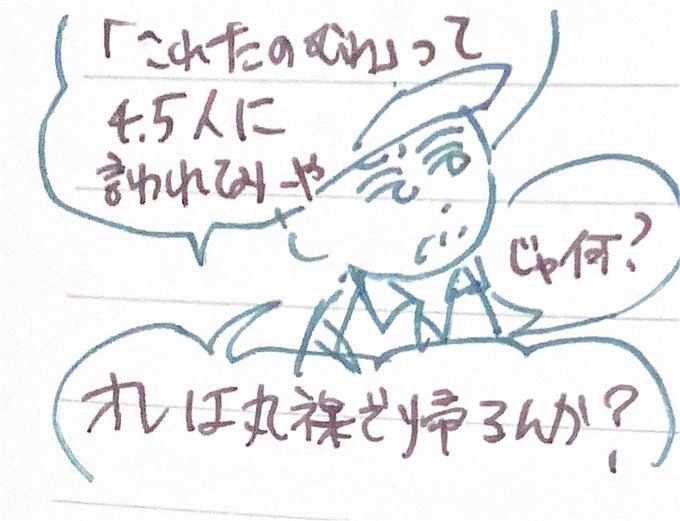 「これたのむわ」って
4.5人に
言われてみーや
じゃ何?
オレは丸裸で帰るんか?